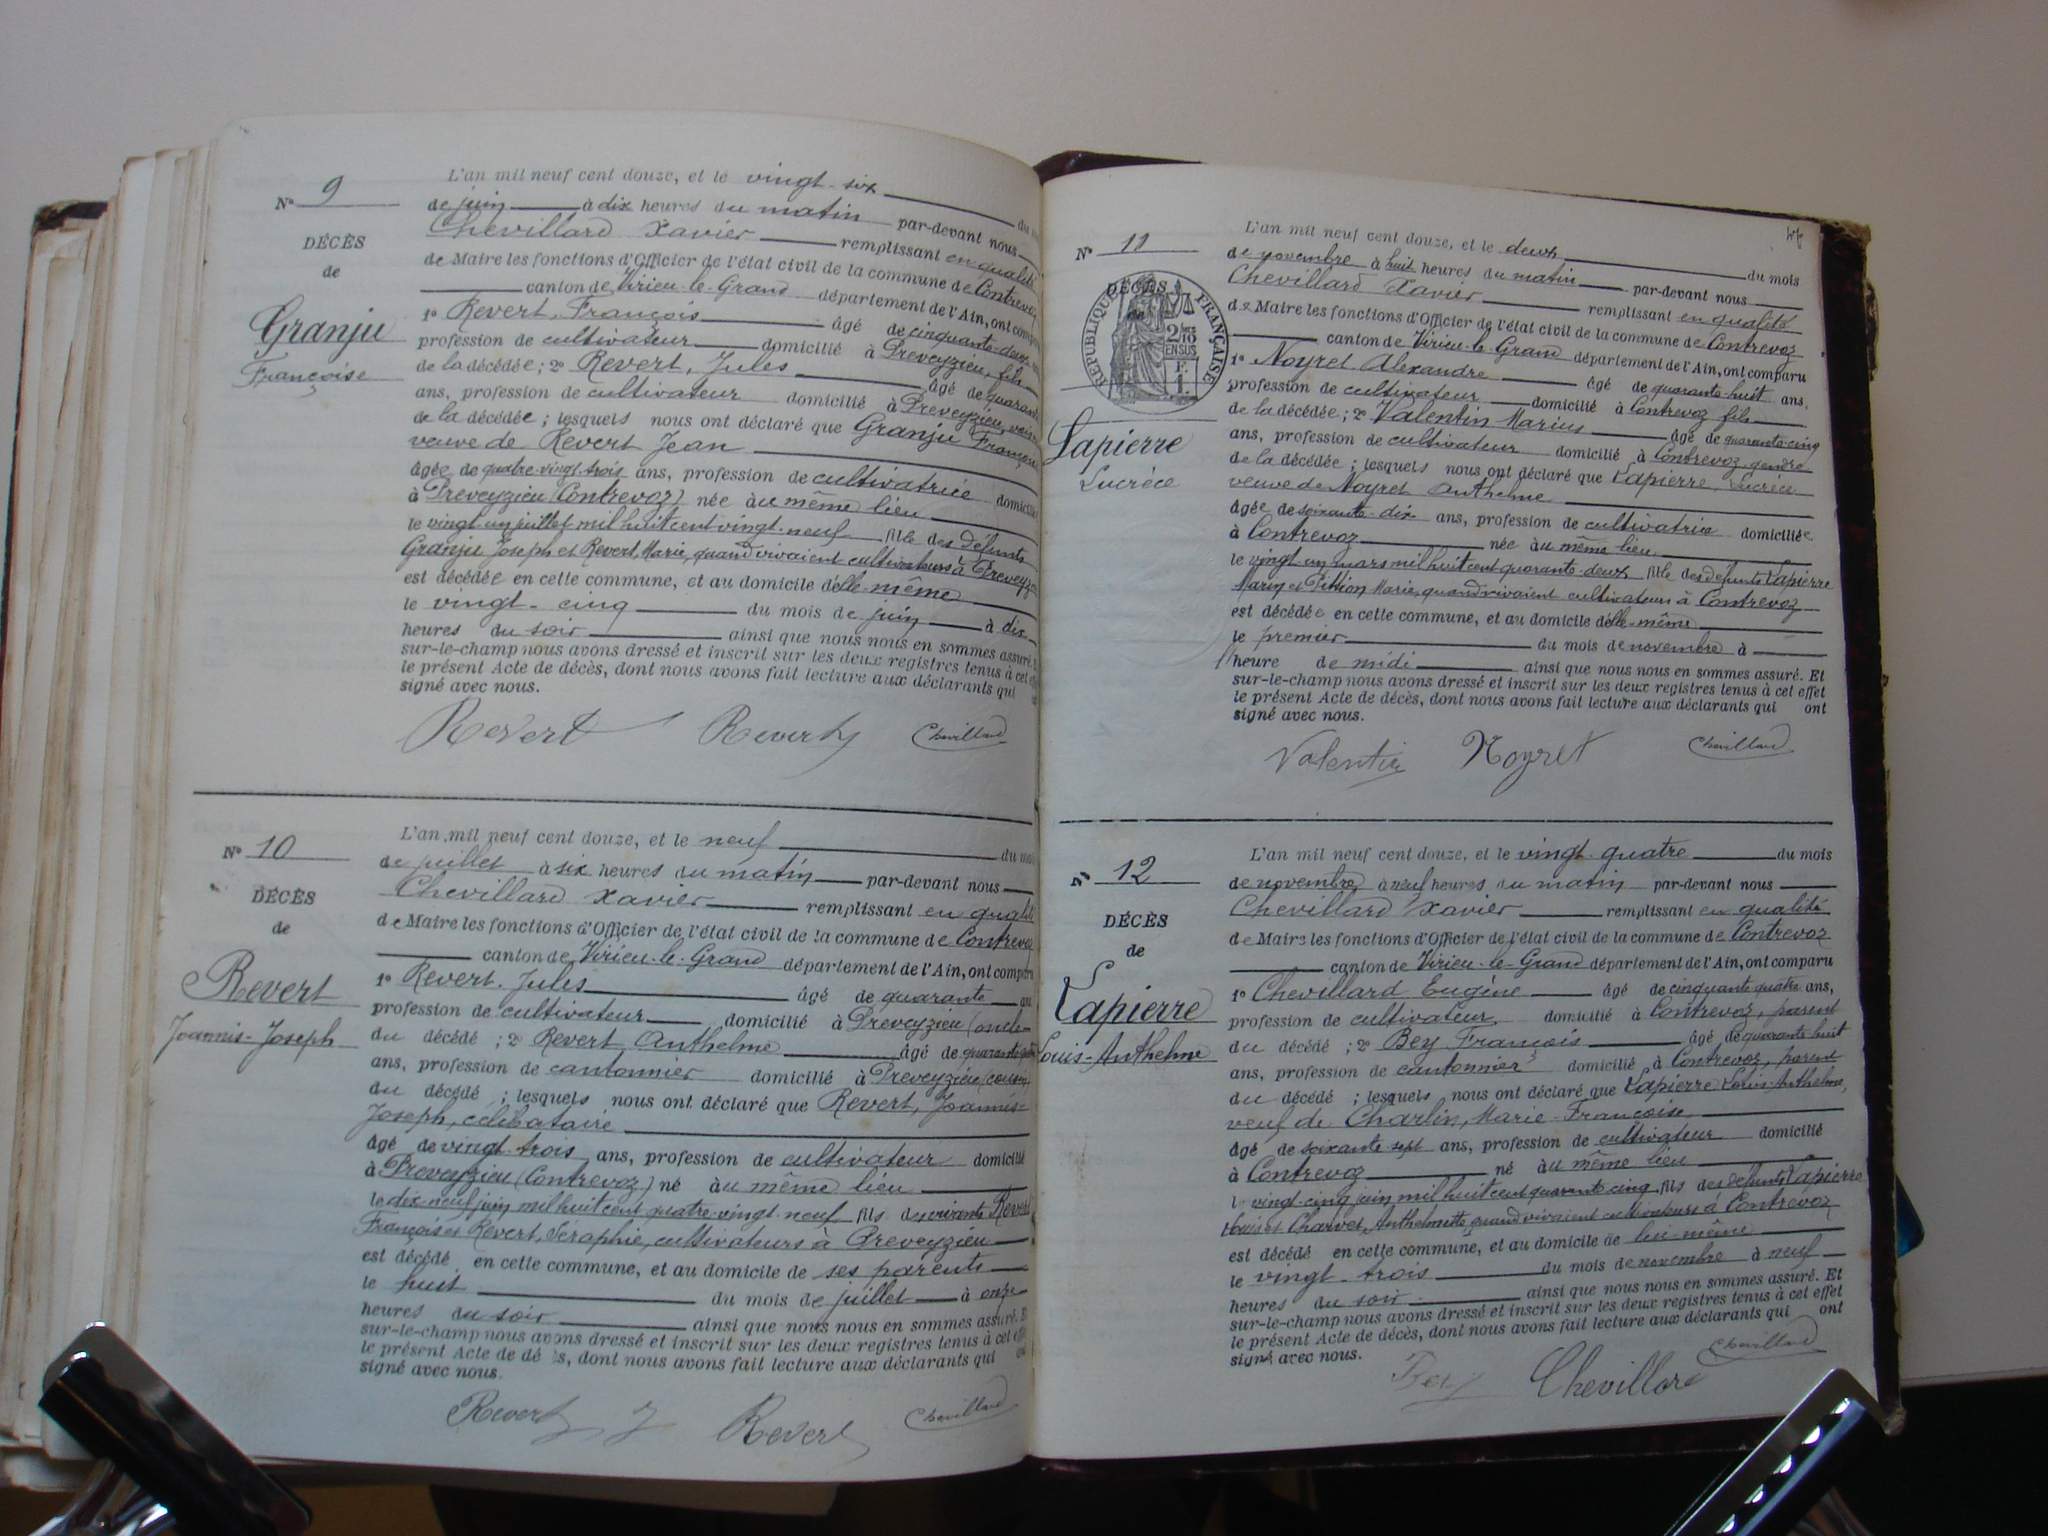 N° 9
DÉCÈS
de
Granju
Françoise
L'an mil neuf cent douze, et le vingt-six
de juin à dix heures du matin par-devant nous
Chevillard Xavier remplissant en qualité
de Maire les fonctions d'Officier de l'état civil de la commune de Contrevoz
canton de Virieu-le-Grand département de l'Ain, ont
1° Revert, François âgé de cinquante-deux
profession de cultivateur domicilié à Preveyzieu, fils
de la décédée; 2° Revert, Jules âgé de quarante
ans, profession de cultivateur domicilié à Preveyzieu,
de la décédée; lesquels nous ont déclaré que Granju
veuve de Revert Jean
âgée de quatre-vingt-trois ans, profession de cultivatrice
à Preveyzieu (Contrevoz) née au même lieu
le vingt un juillet mil huit cent vingt-neuf fille des défunts
Granju Joseph et Revert, Marie, quand vivaient cultivateurs à
est décédée en cette commune, et au domicile d'elle-même
le vingt-cinq du mois de juin à dix
heures du soir ainsi que nous nous en sommes assuré.
sur-le-champ nous avons dressé et inscrit sur les deux registres tenus à cet
le présent Acte de décès, dont nous avons fait lecture aux déclarants qui
signé avec nous.
Revert Revert Chevillard
N° 10
DÉCÈS
de
Revert
Joannis-Joseph
L'an mil neuf cent douze, et le neuf du
de juillet à six heures du matin par-devant nous
Chevillard Xavier remplissant en qualité
de Maire les fonctions d'Officier de l'état civil de la commune de Contrevoz
canton de Virieu-le-Grand département de l'Ain, ont comparu
1° Revert, Jules âgé de quarante
profession de cultivateur domicilié à Preveyzieu (oncle
du décédé; 2° Revert Anthelme âgé de
ans, profession de cantonnier domicilié à Preveyzieu (cousin)
du décédé; lesquels nous ont déclaré que Revert, Joannis-
Joseph, célibataire
âgé de vingt-trois ans, profession de cultivateur domicilié
à Preveyzieu (Contrevoz) né au même lieu
le dix-neuf juin mil huit cent quatre-vingt-neuf fils des vivants Revert
François et Revert, Séraphie, cultivateurs à Preveyzieu
est décédé en cette commune, et au domicile de ses parents
le huit du mois de juillet à onze
heures du soir ainsi que nous nous en sommes assuré.
sur-le-champ nous avons dressé et inscrit sur les deux registres tenus à cet
le présent Acte de décès, dont nous avons fait lecture aux déclarants qui
signé avec nous.
Revert J Revert Chevillard
N° 11
DÉCÈS
RÉPUBLIQUE FRANÇAISE
Lapierre
Lucrèce
L'an mil neuf cent douze, et le deux du mois
de novembre à huit heures du matin par-devant nous
Chevillard Xavier remplissant en qualité
de Maire les fonctions d'Officier de l'état civil de la commune de Contrevoz
canton de Virieu-le-Grand département de l'Ain, ont comparu
1° Noyret Alexandre âgé de quarante-huit ans,
profession de cultivateur domicilié à Contrevoz fils
de la décédée; 2° Valentin Marius âgé de quarante-cinq
ans, profession de cultivateur domicilié à Contrevoz, gendre
de la décédée; lesquels nous ont déclaré que Lapierre, Lucrèce
veuve de Noyret Anthelme
âgée de soixante-dix ans, profession de cultivatrice domiciliée
à Contrevoz née au même lieu
le vingt un mars mil huit cent quarante-deux fille des défunts Lapierre
Marin et Pittion Marie, quand vivaient cultivateurs à Contrevoz
est décédée en cette commune, et au domicile d'elle-même
le premier du mois de novembre à
heure de midi ainsi que nous nous en sommes assuré. Et
sur-le-champ nous avons dressé et inscrit sur les deux registres tenus à cet effet
le présent Acte de décès, dont nous avons fait lecture aux déclarants qui ont
signé avec nous.
Valentin Noyret Chevillard
N° 12
DÉCÈS
de
Lapierre
Louis-Anthelme
L'an mil neuf cent douze, et le vingt-quatre du mois
de novembre à neuf heures du matin par-devant nous
Chevillard Xavier remplissant en qualité
de Maire les fonctions d'Officier de l'état civil de la commune de Contrevoz
canton de Virieu-le-Grand département de l'Ain, ont comparu
1° Chevillard Eugène âgé de cinquante quatre ans,
profession de cultivateur domicilié à Contrevoz, parent
du décédé; 2° Bey François âgé de quarante huit
ans, profession de cantonnier domicilié à Contrevoz, parent
du décédé; lesquels nous ont déclaré que Lapierre Louis-Anthelme,
veuf de Charlin, Marie-Françoise
âgé de soixante sept ans, profession de cultivateur domicilié
à Contrevoz né au même lieu
le vingt-cinq juin mil huit cent quarante cinq fils des défunts Lapierre
Louis et Charvet, Anthelmette quand vivaient cultivateurs à Contrevoz
est décédé en cette commune, et au domicile de lui-même
le vingt-trois du mois de novembre à neuf
heures du soir ainsi que nous nous en sommes assuré. Et
sur-le-champ nous avons dressé et inscrit sur les deux registres tenus à cet effet
le présent Acte de décès, dont nous avons fait lecture aux déclarants qui ont
signé avec nous.
Bey Chevillard Chevillard